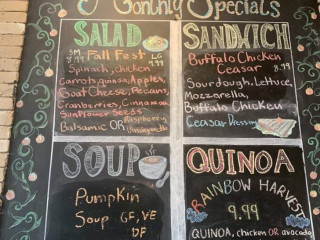 Monthly Specials
SALAD
SM Fall Fest LG
8.99
Spinach, chicken
Carrots, quinoa, Apples,
Goat Cheese, Pecans,
Cranberries, Cinnamon
Sunflower Seeds
Balsamic OR Raspberry
Vinaigrette
SANDWICH
Buffalo Chicken
Ceasar 8.99
Sourdough, Lettuce,
Mozzarella,
Buffalo Chicken
Ceasar Dressing
SOUP
Pumpkin
Soup GF, VE
DF
QUINOA
RAINBOW HARVEST
9.99
QUINOA, chicken OR avocado